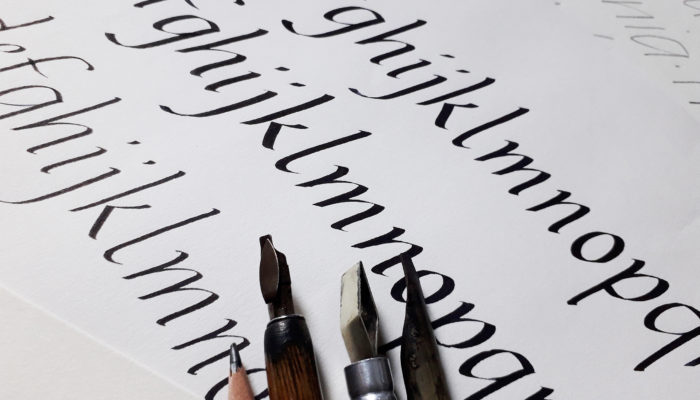 ghijklmnopq
fghijklmnopq
efghijklmn